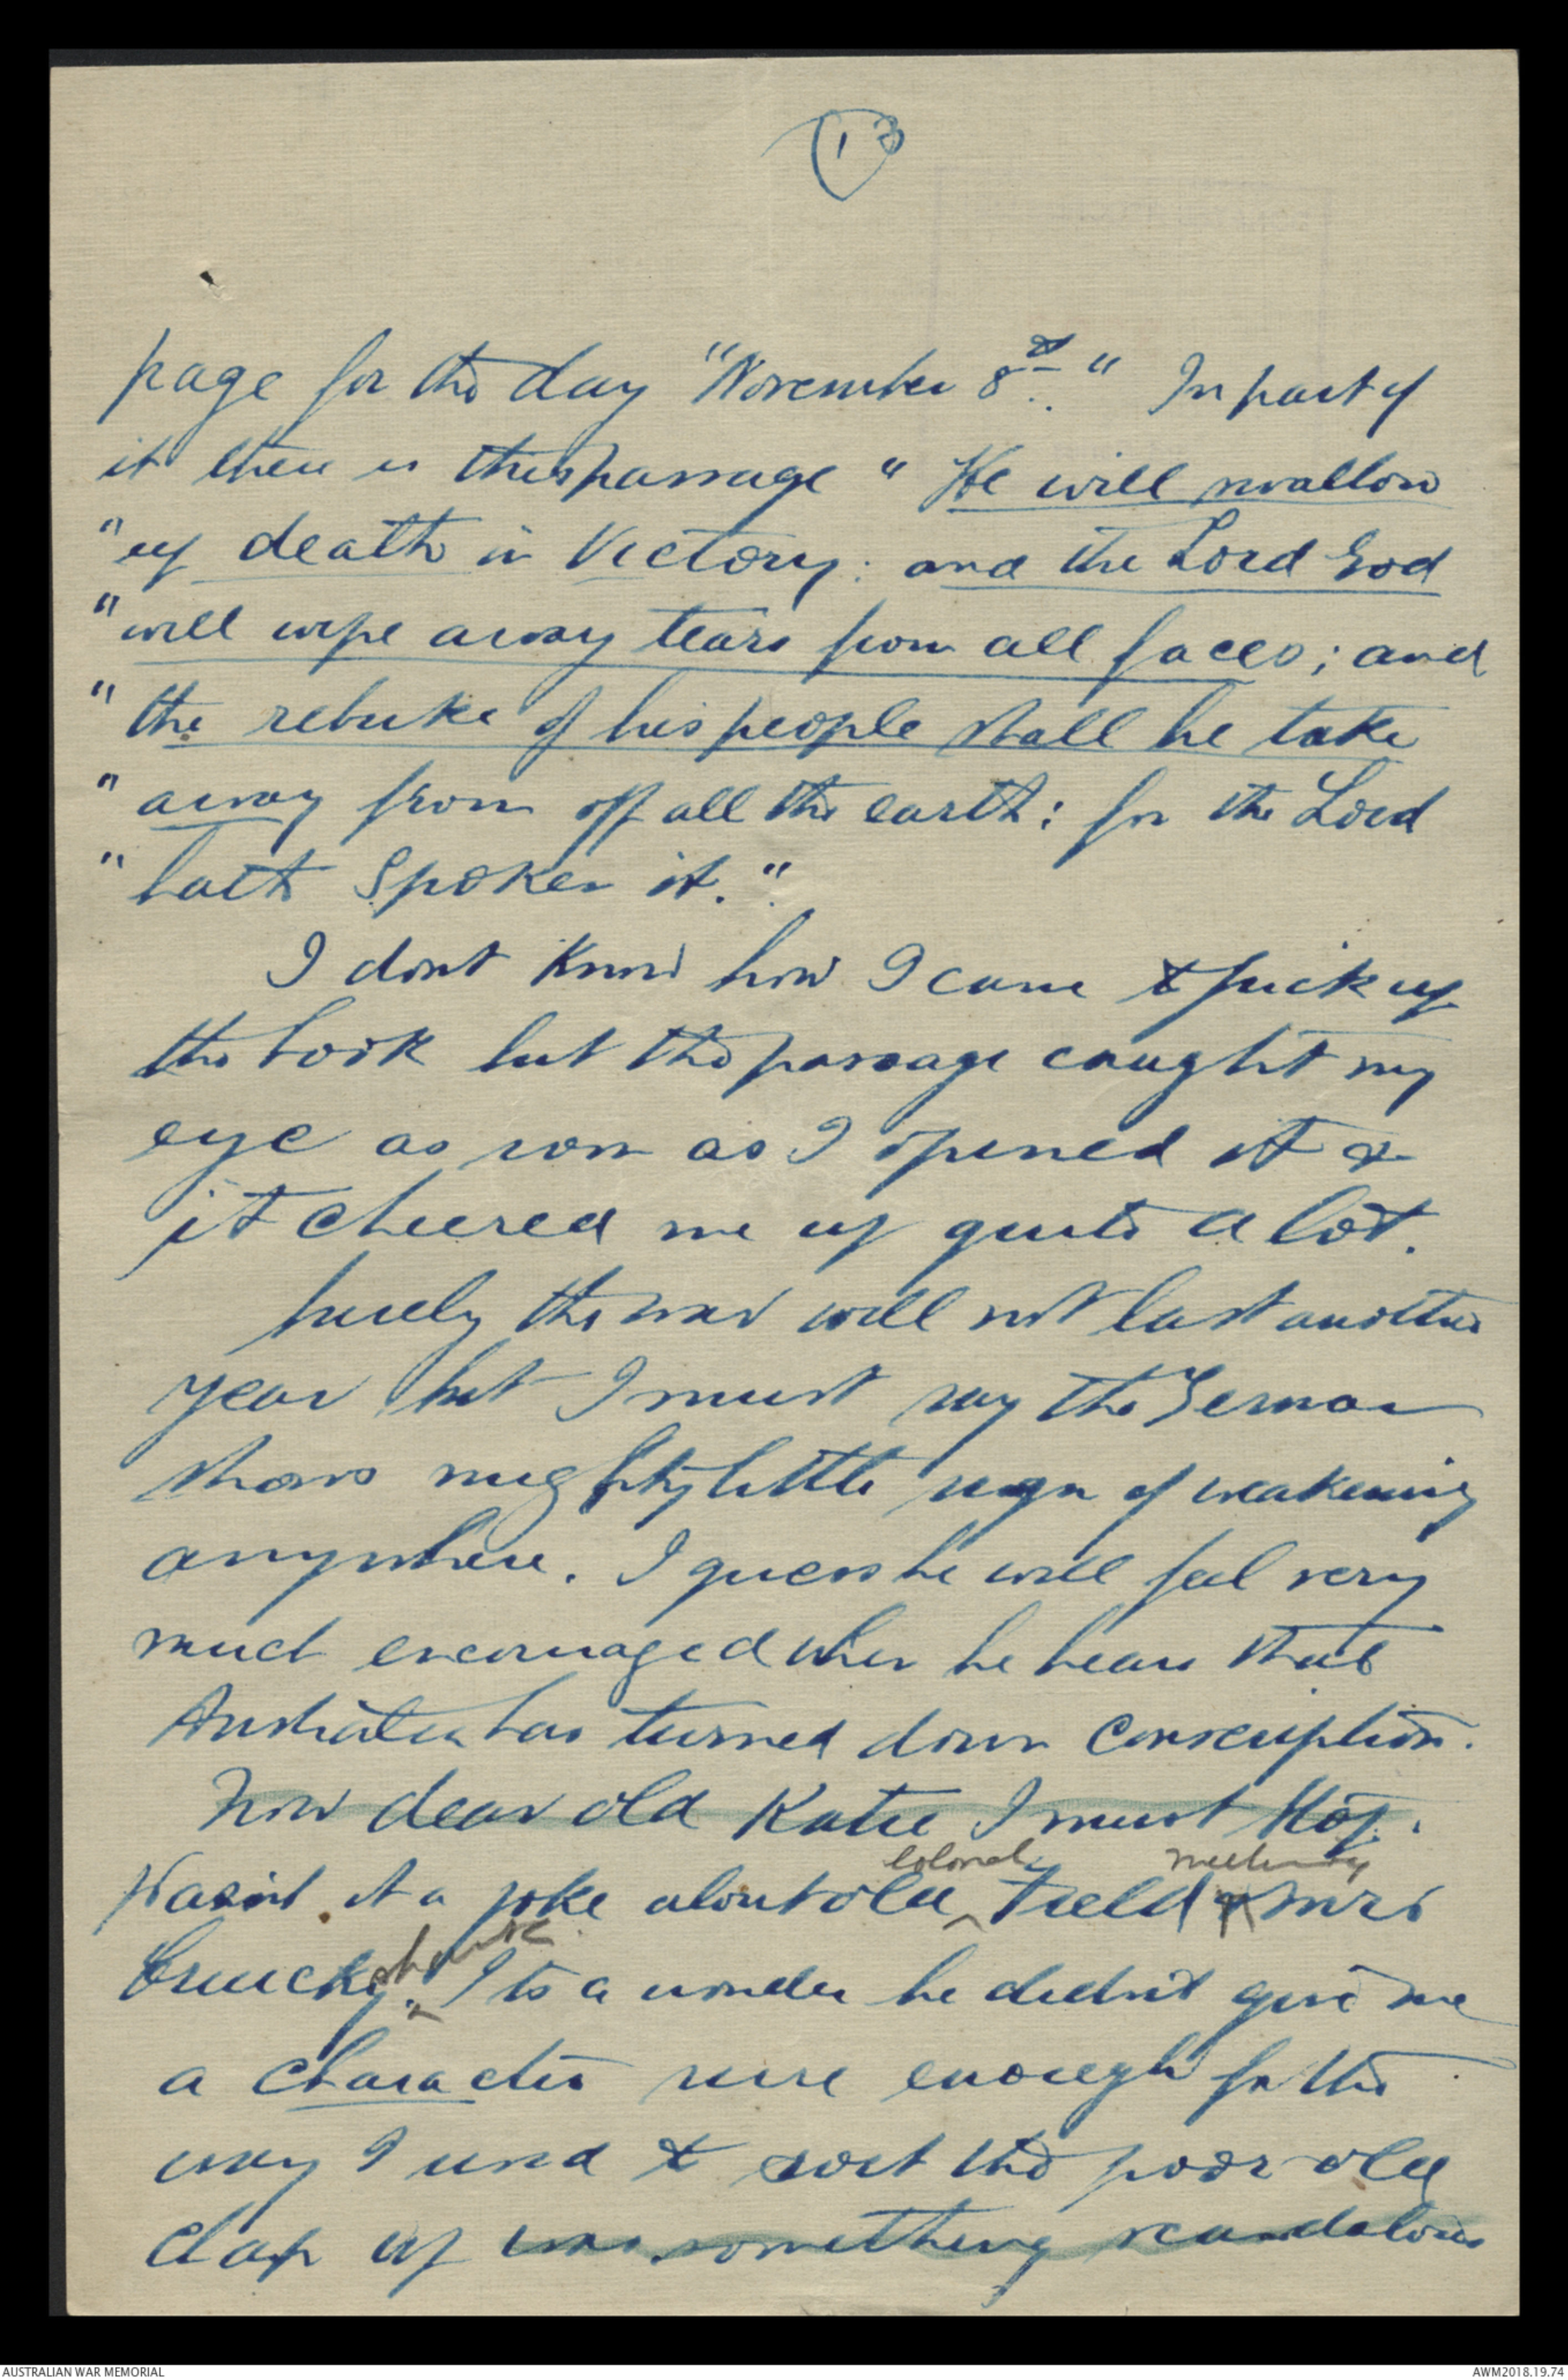 13
page for the day "November 8th.." In part of
it there is this passage " He will swallow
"up death in Victory: and the Lord God
"will wipe away tears from all faces; and
"the rebuke of his people shall he take
"away from off all the earth: for the Lord
"hath spoken it."
I dont know how I came to pick up
the book but the passage caught my
eye as soon as I opened it &
it cheered me up quite a lot.
Surely the war will not last another
year but I must say the German
shows mighty little sign of weakening
anywhere. I guess he will feel very
much encouraged when he hears that
Australia has turned down conscription.
Now dear old Katie I must stop.
Colonel
Wasn't it a joke about old Field & Mrs
Cruick
shank
. Its a wonder he didn't give me
a character sure enough for the
way I used to rout the poor old
chap up was something scandalous
AUSTRALIAN WAR MEMORIAL
AWM2018.19.74